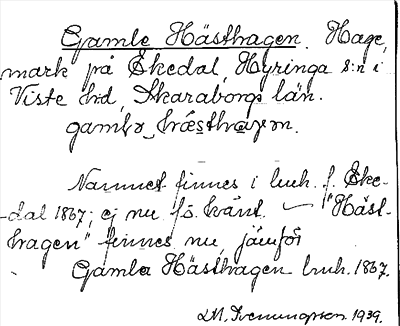 Gamle Hästhagen. Hage,
mark på Ekedal, Hyringa s:n i
Viste hd, Skaraborgs län.
gamlə hæsthaɡən.
Namnet finnes i luh. f. Eke-
-dal 1867; ej nu fö. känt. — "Häst-
hagen" finnes nu, jämför
Gamla Hästhagen luh. 1867.
1939.